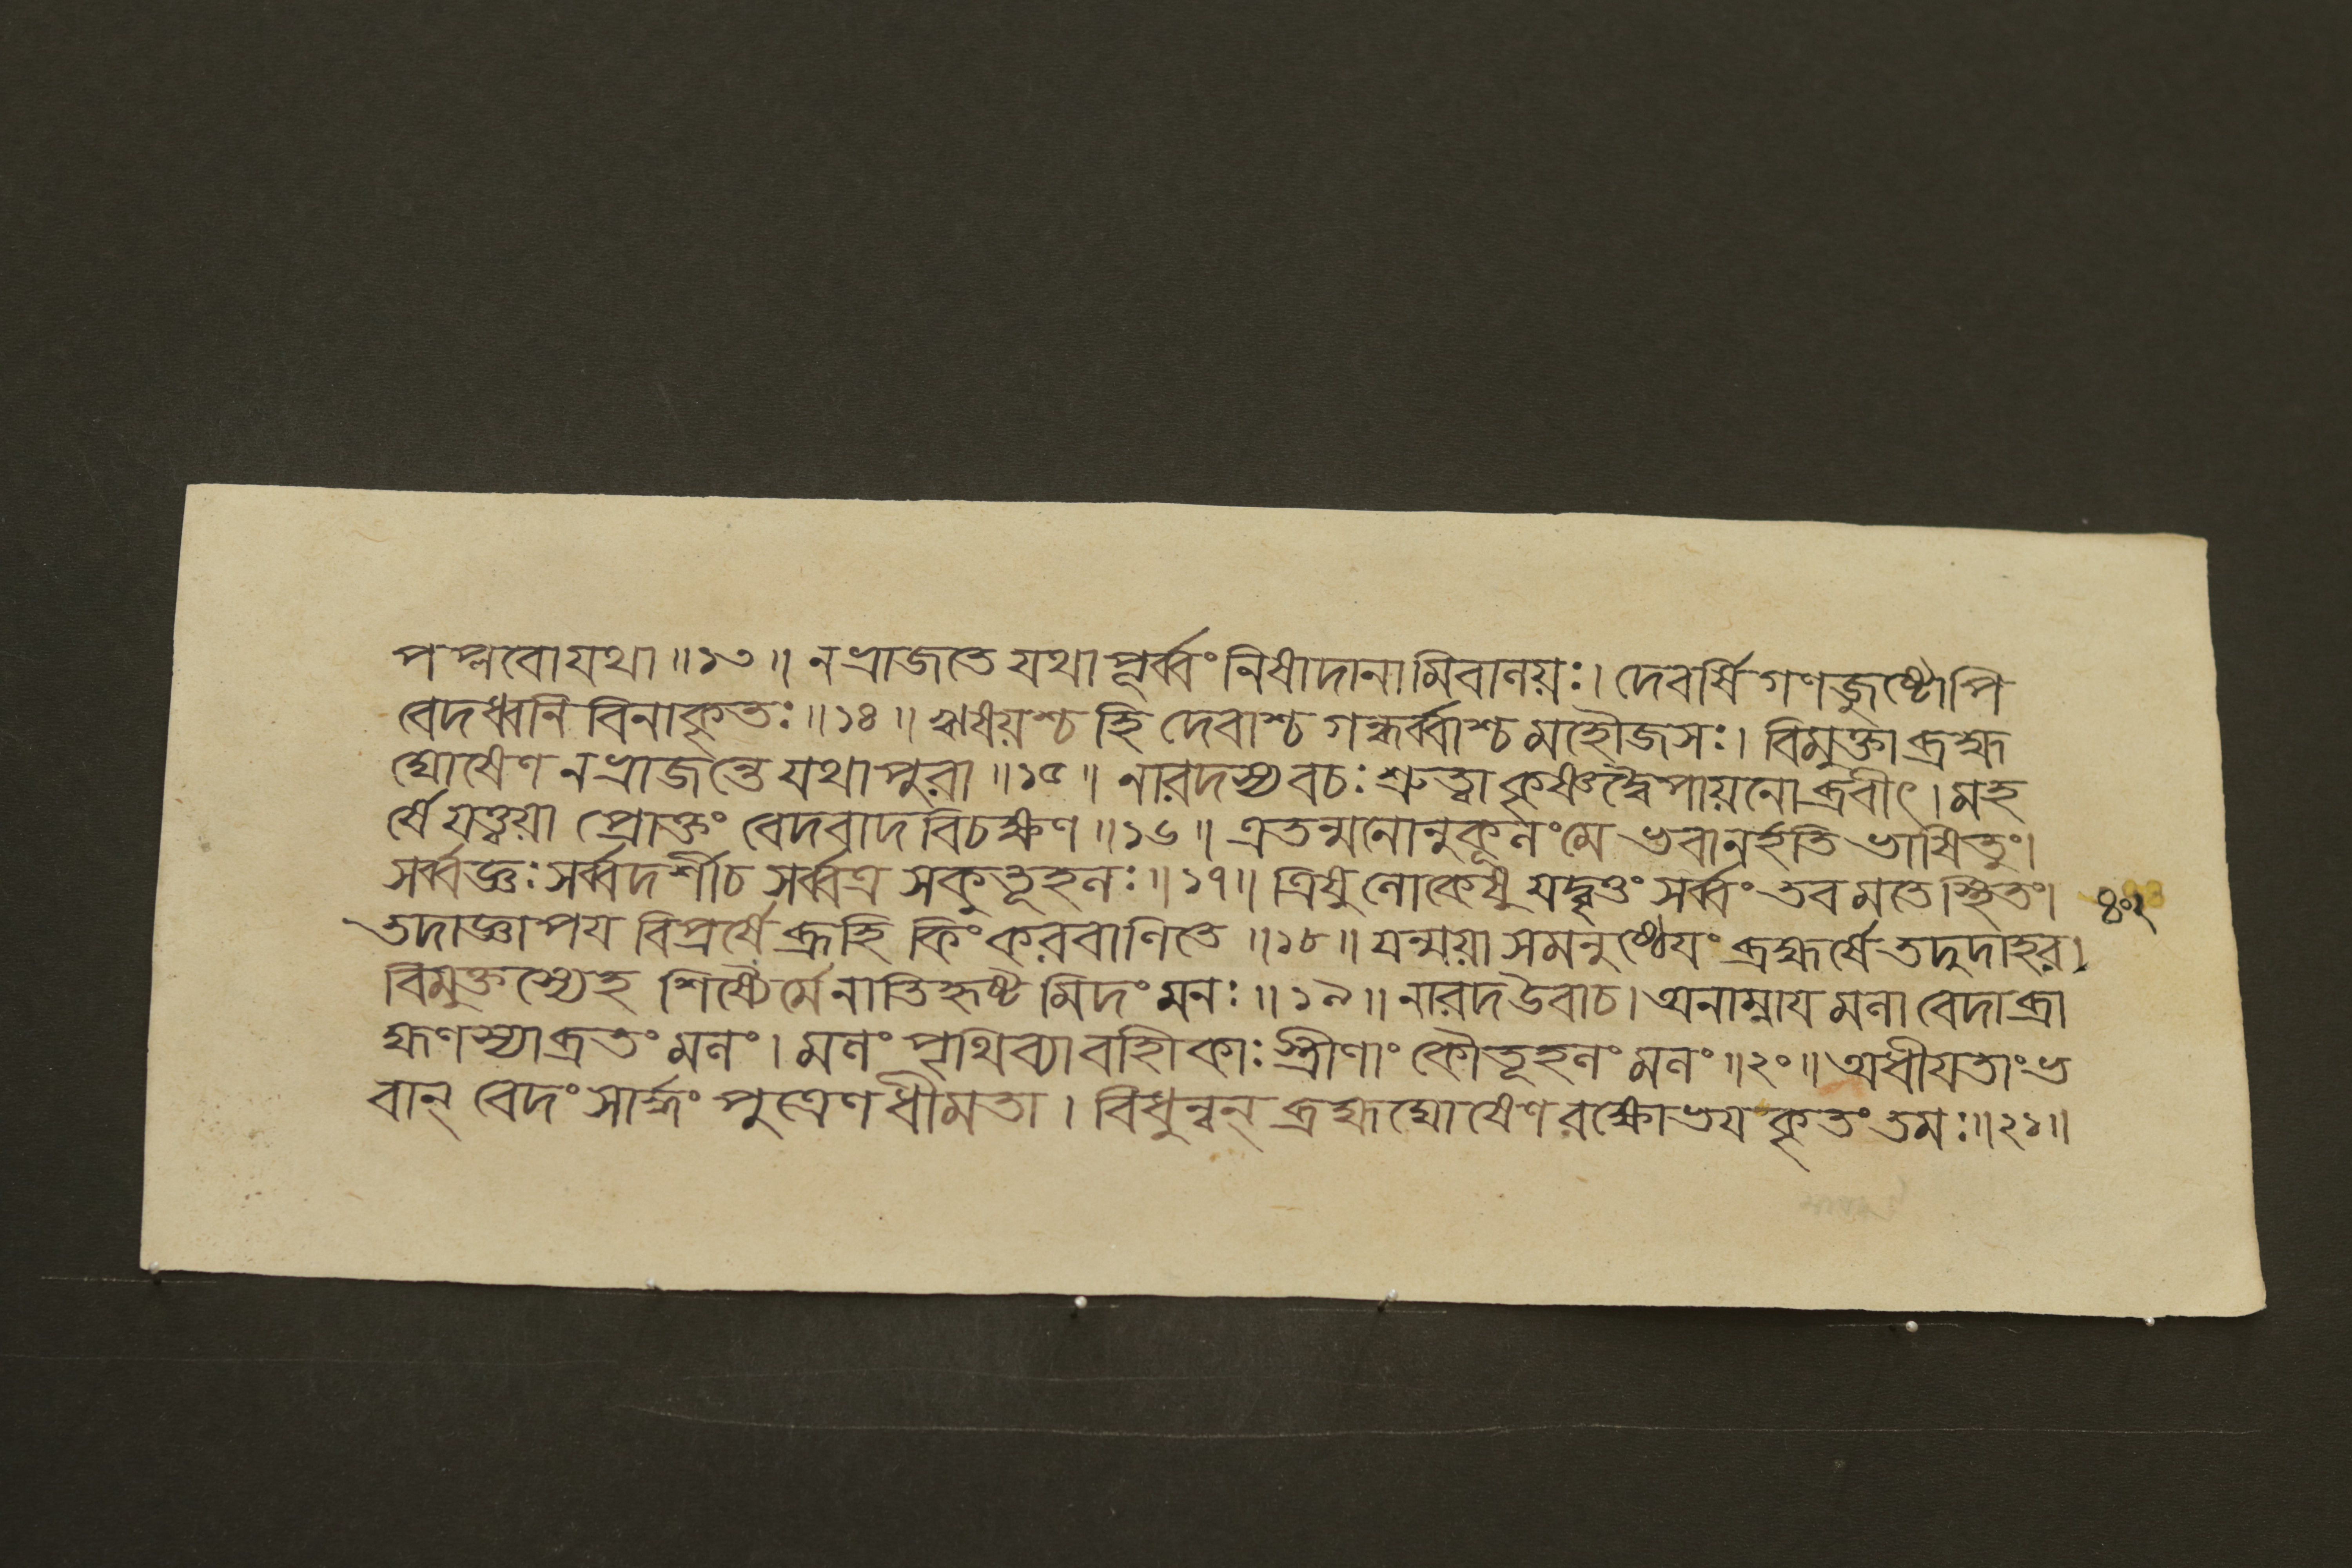 পপ্লবোযথা ॥১৩॥ নভ্রাজতে যথাপূর্ব্বং নিষাদানামিবালয়ঃ। দেবর্ষিগণজুষ্টোপি
বেদধ্বনি বিনাকৃতঃ ॥১৪॥ ঋষয়শ্চ হি দেবাশ্চ গন্ধর্ব্বাশ্চ মহৌজসঃ। বিমুক্তাব্রহ্ম
ঘোষেণ নভ্রাজন্তে যথাপুরা ॥১৫॥ নারদস্য বচঃ শ্রুত্বা কৃষ্ণদ্বৈপায়নোব্রবীৎ। মহ
র্ষে যত্ত্বয়া প্রোক্তং বেদবাদবিচক্ষণ ॥১৬॥ এতন্মনোনুকূলং মে ভবানর্হতি ভাষিতুং।
সর্ব্বজ্ঞঃ সর্ব্বদর্শীচ সর্ব্বত্র সকুতূহলঃ ॥১৭॥ ত্রিষুলোকেষু যদ্বৃত্তং সর্ব্বং তব মতে স্থিতং।
তদাজ্ঞাপয বিপ্রর্ষে ব্রূহি কিং করবাণিতে ॥১৮॥ যন্ময়া সমনুষ্ঠেযং ব্রহ্মর্ষে তদুদাহর।
বিমুক্তস্যেহ শিষ্যৈর্মে নাতিহৃষ্ট মিদং মনঃ ॥১৯॥ নারদউবাচ। অনাম্নাযমলা বেদাব্রা
হ্মণস্যাব্রতং মলং। মলং পৃথিব্যাবাহীকাঃ স্ত্রীণাং কৌতূহলং মলং ॥২০॥ অধীযতাং ভ
বান্ বেদং সার্দ্ধং পুত্রেণধীমতা। বিধুন্বন্ ব্রহ্মঘোষেণ রক্ষোভযকৃতং তমঃ ॥২১॥